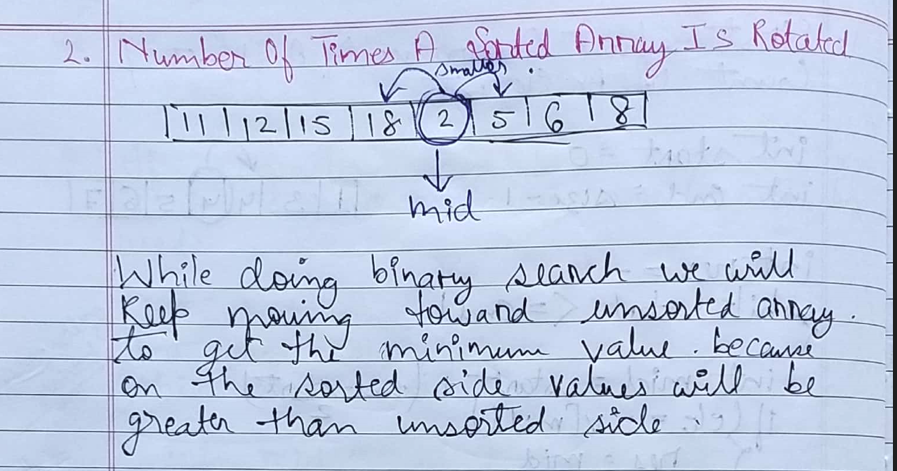 2. Number Of Times A Sorted Array Is Rotated
smaller
11 12 15 18 2 5 6 8
mid
While doing binary search we will
keep moving toward unsorted array.
to get the minimum value. because
on the sorted side values will be
greater than unsorted side.